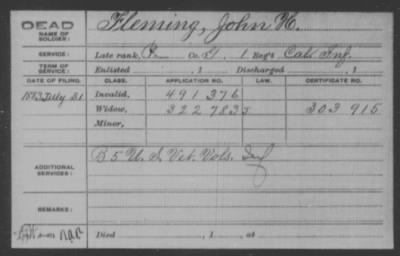 DEAD
NAME OF SOLDIER: Fleming, John H.
SERVICE: Late rank, Co. 1 Reg't Cal. Inf.
TERM OF SERVICE: Enlisted , 1 Discharged , 1
DATE OF FILING. CLASS. APPLICATION NO. LAW. CERTIFICATE NO.
1883 July 21 Invalid, 491376
Widow, 322783 303 915
Minor,
ADDITIONAL SERVICES: B 5 U. S. Vet. Vols. Inf
REMARKS:
Died , 1 , at